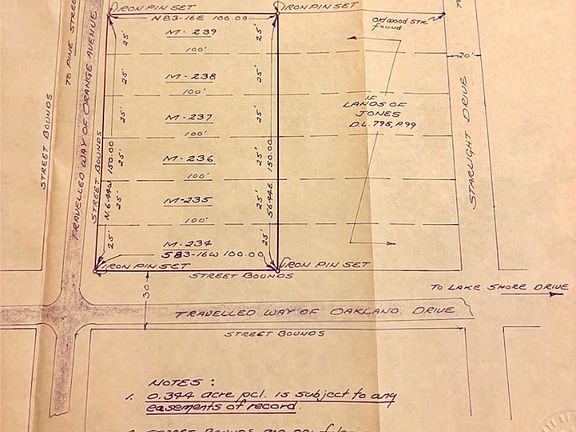 IRON PIN SET
IRON PIN SET
N 83-16 E 100.00
OLD WOOD STK
FOUND
M - 239
25'
25'
100'
M - 238
25'
25'
100'
M - 237
25'
25'
100'
M - 236
25'
25'
100'
M - 235
25'
25'
100'
M - 234
25'
S 83-16 W 100.00
N. 6-44 W 150.00
S 6-44 E 150.00
IRON PIN SET
IRON PIN SET
STREET BOUNDS
LANDS OF
JONES
D.L. 795, P. 99
20'
STARLIGHT DRIVE
TO PINE STREET
TRAVELLED WAY OF ORANGE AVENUE
STREET BOUNDS
STREET BOUNDS
TO LAKE SHORE DRIVE
30'
TRAVELLED WAY OF OAKLAND DRIVE
STREET BOUNDS
NOTES :
1. 0.344 acre pcl. is subject to any
easements of record.